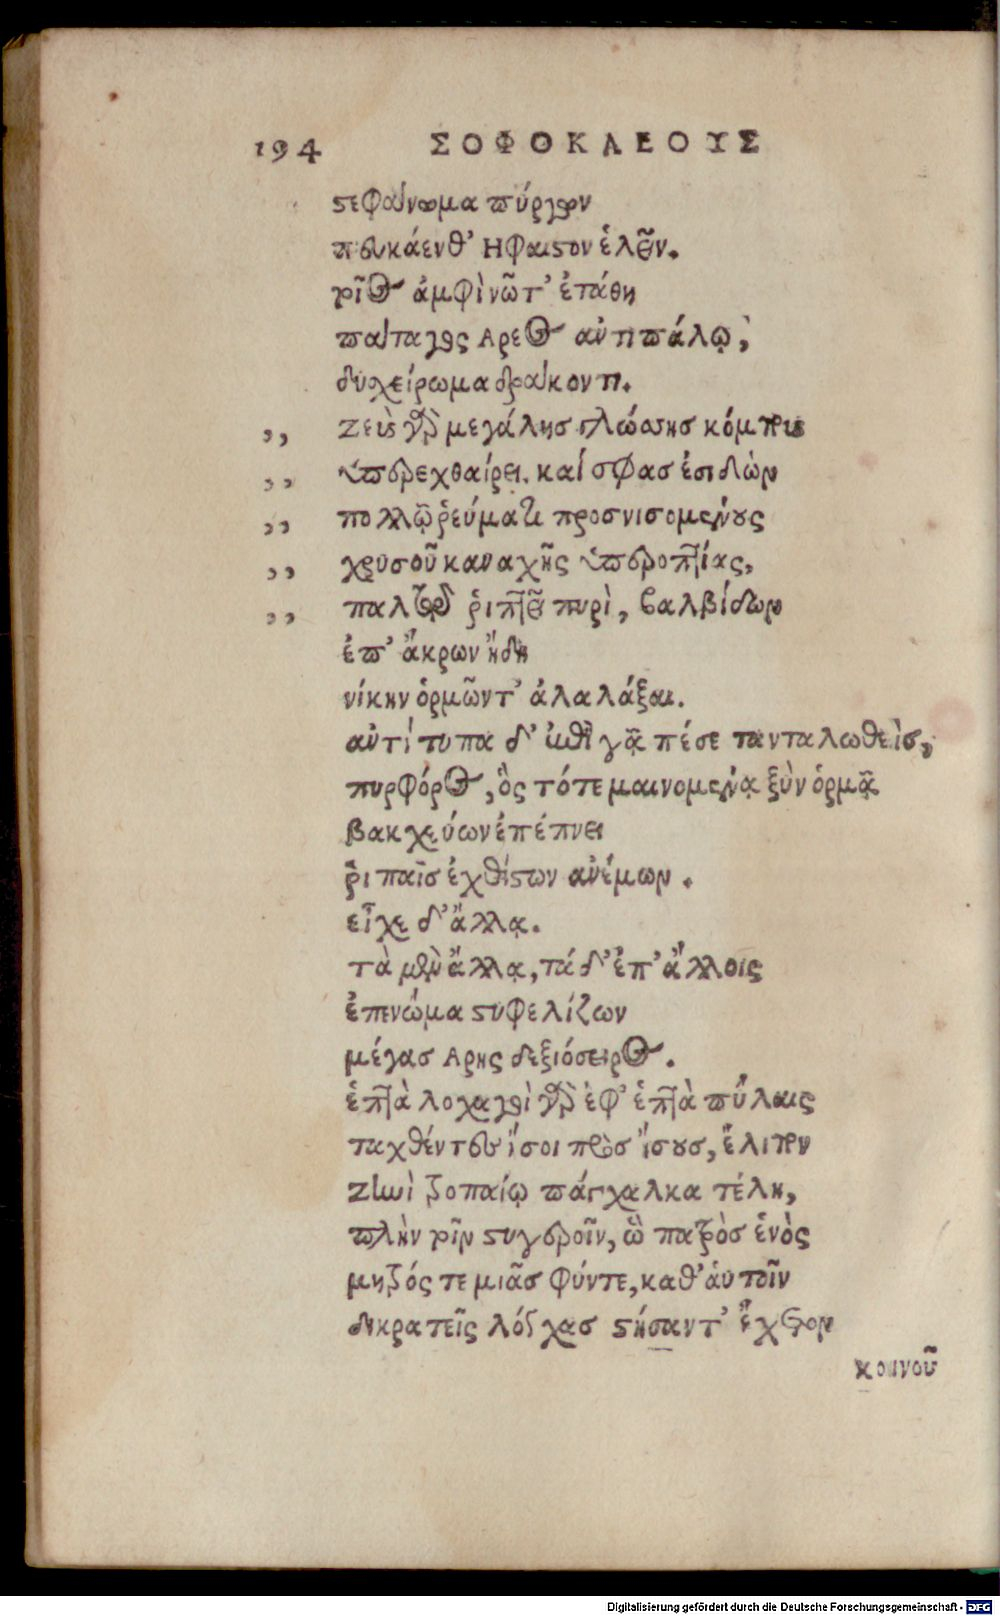 194 ΣΟΦΟΚΛΕΟΥΣ
στεφάνωμα πύργων
πευκάενθ' Ηφαιστον ἑλεῖν.
τοῖος ἀμφὶ νῶτ' ἐτάθη
πάταγος Αρεος ἀντιπάλῳ,
δυσχείρωμα δράκοντι.
,, Ζεὺς γὰρ μεγάλησ γλώσσησ κόμπους
,, ὑπερεχθαίρει. καί σφασ ἐσιδὼν
,, πολλῷ ῥεύματι προσνισομένους
,, χρυσοῦ καναχῆς ὑπεροπτίας,
,, παλτῷ ῥιπτεῖ πυρὶ, βαλβίδων
ἐπ' ἄκρων ἤδη
νίκην ὁρμῶντ' ἀλαλάξαι.
ἀντίτυπα δ' ἐπὶ γᾷ πέσε τανταλωθεὶσ,
πυρφόρος, ὃς τότε μαινομένᾳ ξὺν ὁρμᾷ
βακχεύων ἐπέπνει
ῥιπαῖσ ἐχθίστων ἀνέμων.
εἶχε δ' ἄλλᾳ.
τὰ μὲν ἄλλᾳ, τά δ' ἐπ' ἄλλοις
ἐπενώμα στυφελίζων
μέγασ Αρης δεξιόσειρος.
ἑπτὰ λοχαγοὶ γὰρ ἐφ' ἑπτὰ πύλαις
ταχθέντες ἴσοι πρὸσ ἴσουσ, ἔλιπον
Ζηνὶ τροπαίῳ πάγχαλκα τέλη,
πλὴν τοῖν στυγεροῖν, ὣ πατρὸσ ἑνὸς
μητρός τε μιᾶσ φύντε, καθ' αὑτοῖν
δικρατεῖς λόγχασ στήσαντ' ἔχετον
κοινοῦ
Digitalisierung gefördert durch die Deutsche Forschungsgemeinschaft - DFG